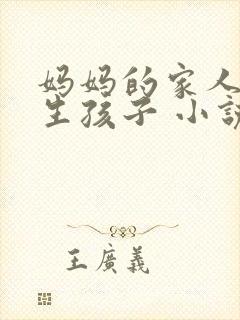 妈妈的家人
生孩子 小説
王廣義